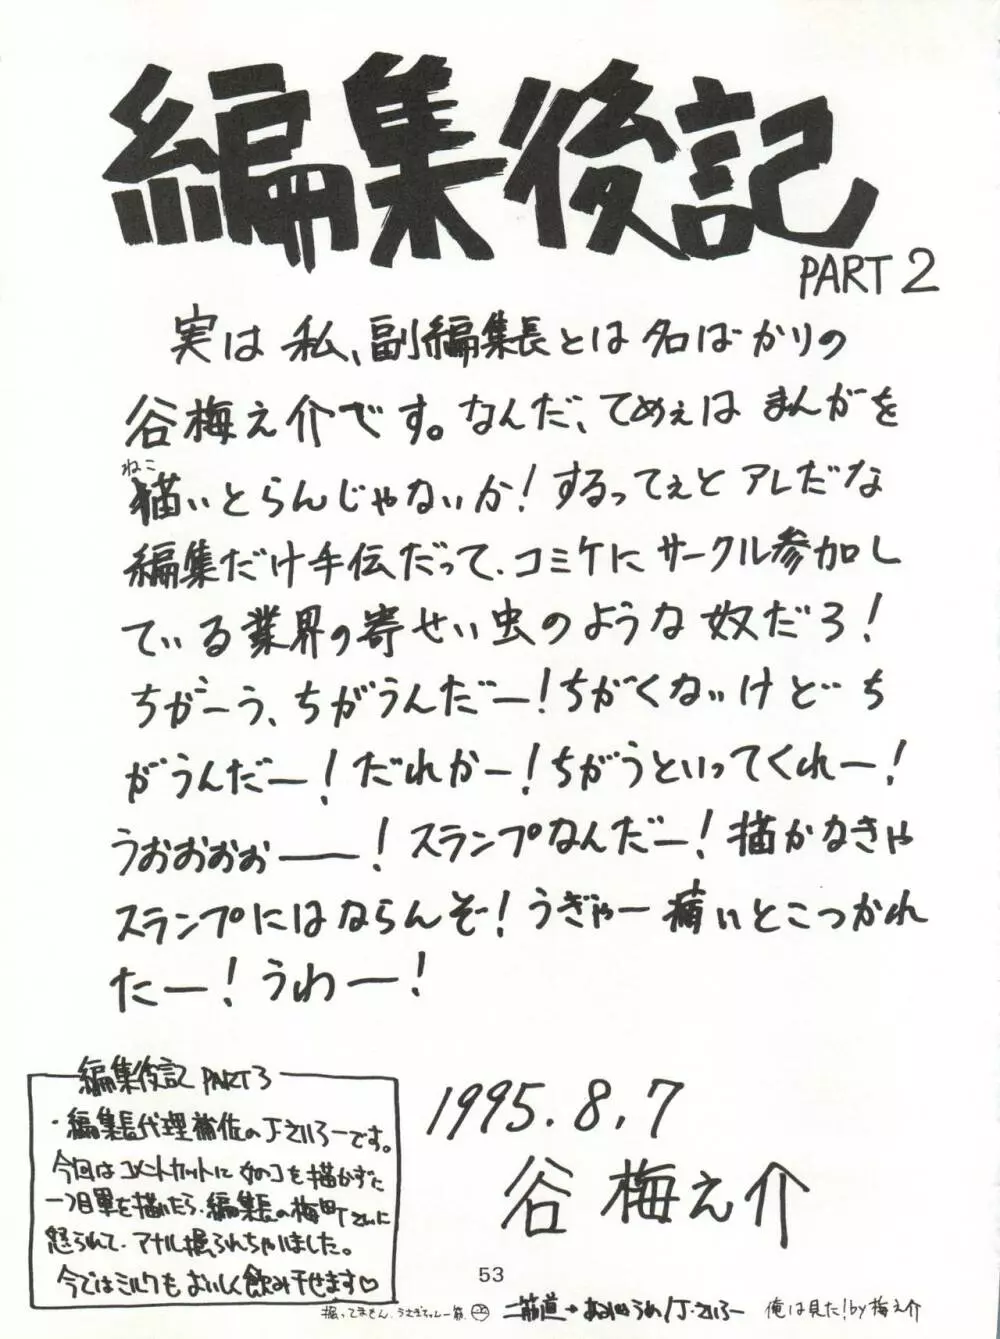 編集後記
PART 2
実は私、副編集長とは名ばかりの
谷梅之介です。なんだ、てめぇは まんがを
ねこ
描いとらんじゃないか!するってぇと アレだな
編集だけ手伝だって、コミケに サークル参加し
ている業界の寄せい虫のような奴だろ!
ちがーう、ちがうんだー!ちがくないけど ち
がうんだー!だれかー!ちがうといってくれー!
うおおおぉー!スランプなんだー!描かなきゃ
スランプにはならんぞ!うぎゃー 痛いとこつかれ
たー!うわー!
1995.8.7
谷 梅之介
編集後記 PART3
・編集長代理補佐のJ・さいろーです。
今回はコメントカットに 女のコを描かずに
一つ目軍を描いたら、編集長の梅町さんに
怒られて、アナル掘られちゃいました。
今ではミルクも おいしく飲み干せます♡
53
掘ってません。うさぎちゃん一筋。
二筋道→ /J・さいろー
俺は見た!by梅之介